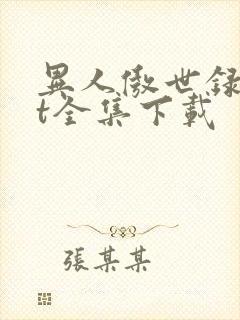 異人傲世録
t全集下載
張某某